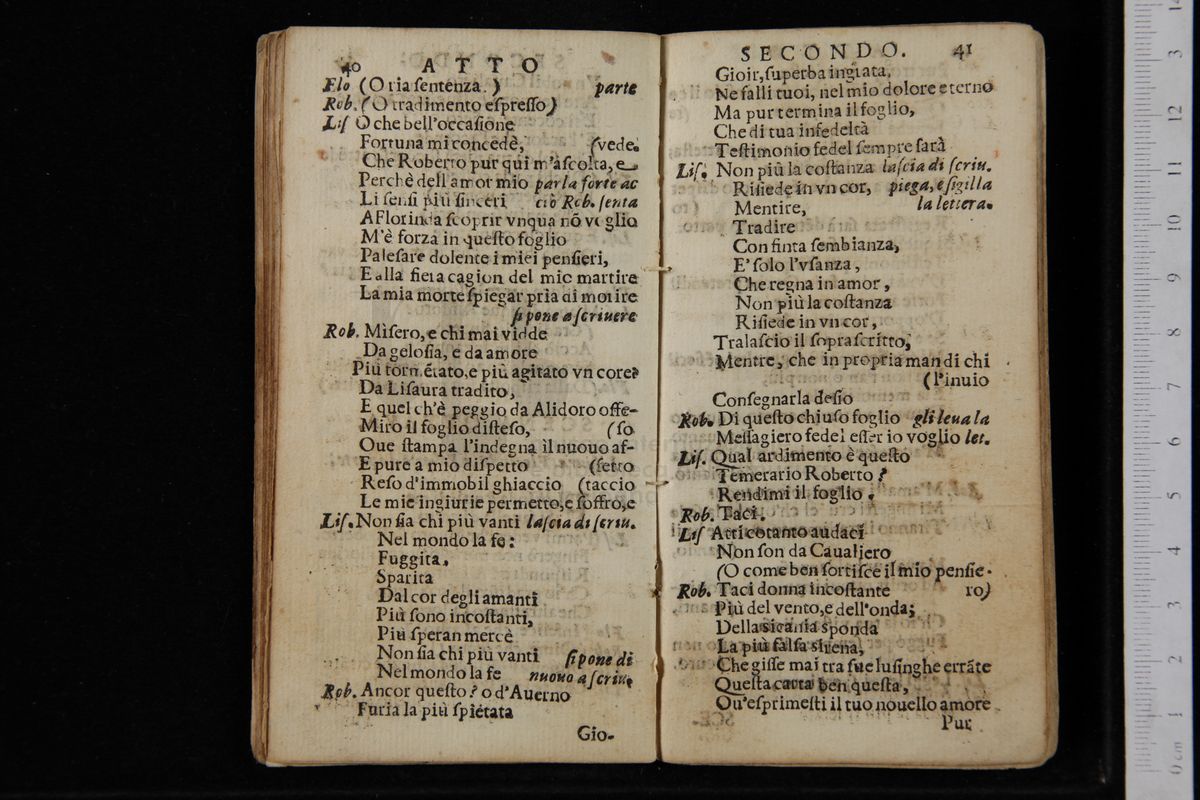 40 ATTO
Flo (O ria ſentenza.) parte
Rob. (O tradimento eſpreſſo)
Liſ O che bell'occaſione
Fortuna mi concedè, (vede.
Che Roberto pur qui m'aſcolta, e
Perchè dell amor mio parla forte ac
Li ſenſi più ſinceri ciò Rob. ſenta
A Florinda ſcoprir vnqua nõ voglio
M'è forza in queſto foglio
Paleſare dolente i miei penſieri,
E alla fiera cagion del mio martire
La mia morte ſpiegar pria di morire
ſi pone a ſcriuere
Rob. Miſero, e chi mai vidde
Da geloſia, e da amore
Più tormẽtato, e più agitato vn core?
Da Liſaura tradito,
E quel ch'è peggio da Alidoro offe-
Miro il foglio diſteſo, (ſo
Oue ſtampa l'indegna il nuouo af-
E pure a mio diſpetto (fetto
Reſo d'immobil ghiaccio (taccio
Le mie ingiurie permetto, e ſoffro, e
Liſ. Non ſia chi più vanti laſcia di ſcriu.
Nel mondo la fe:
Fuggita,
Sparita
Dal cor degli amanti
Più ſono incoſtanti,
Più ſperan mercè
Non ſia chi più vanti ſi pone di
Nel mondo la fe nuouo a ſcriu.
Rob. Ancor queſto? o d'Auerno
Furia la più ſpietata
Gio-
SECONDO. 41
Gioir, ſuperba ingrata,
Ne falli tuoi, nel mio dolore eterno
Ma pur termina il foglio,
Che di tua infedeltà
Teſtimonio fedel ſempre ſarà
Liſ. Non più la coſtanza laſcia di ſcriu.
Riſiede in vn cor, piega, e ſigilla
Mentire, la lettera.
Tradire
Con finta ſembianza,
E' ſolo l'vſanza,
Che regna in amor,
Non più la coſtanza
Riſiede in vn cor,
Tralaſcio il ſopraſcritto,
Mentre, che in propria man di chi
(l'inuio
Conſegnarla deſio
Rob. Di queſto chiuſo foglio gli leua la
Meſſagiero fedel eſſer io voglio let.
Liſ. Qual ardimento è queſto
Temerario Roberto?
Rendimi il foglio.
Rob. Taci.
Liſ Atti cotanto audaci
Non ſon da Caualiero
(O come ben ſortiſce il mio penſie-
Rob. Taci donna incoſtante ro)
Più del vento, e dell'onda;
Della sicania sponda
La più falſa sirena,
Che giſſe mai tra ſue luſinghe errãte
Queſta carta ben queſta,
Ou'eſprimeſti il tuo nouello amore
Pur